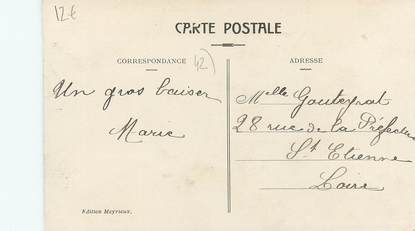 12€
CARTE POSTALE
CORRESPONDANCE
42)
ADRESSE
Un gros baiser
Marie
Melle Gouteyrat
28 rue de la Préfecture
St Etienne
Loire
Edition Meyrieux.